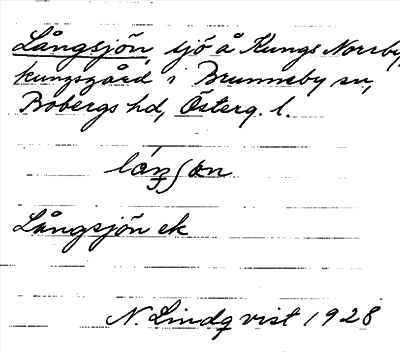 Långsjön, sjö å Kungs Norrby
kungsgård i Brunneby sn,
Bobergs hd, Österg. l.
Långsjön ek
N. Lindqvist 1928